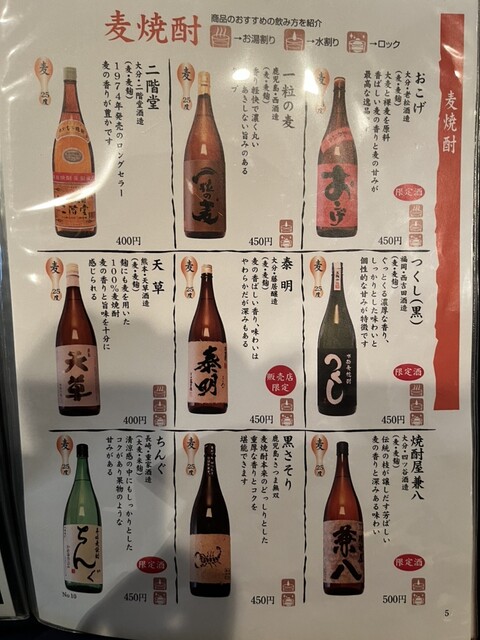 麦焼酎
商品のおすすめの飲み方を紹介
→お湯割り
→水割り
→ロック
麦焼酎
おこげ
大分・老松酒造
(麦・麦麹)
大麦と裸麦を原料
香ばしい麦の香りと麦の甘みが
最高な逸品です
麦
25度
おこげ
限定酒
450円
一粒の麦
鹿児島・西酒造
(麦・麦麹)
麦り軽快で濃く丸い
あきしない旨みのある
麦
25度
一粒の麦
450円
二階堂
大分・二階堂酒造
(麦・麦麹)
1974年発売のロングセラー
麦の香りが豊かです
麦
25度
二階堂
400円
つくし(黒)
福岡・西吉田酒造
(麦・麦麹)
ぐっとくる濃厚な香り、
しっかりとした味わいと
個性的な甘みが特徴です
麦
25度
つくし
限定酒
450円
泰明
大分・藤居醸造
(麦・麦麹)
麦の香ばしい香り、味わいは
やわらかだが深みもある
麦
25度
泰明
販売店
限定
450円
天草
熊本・天草酒造
(麦・麦麹)
麹にも麦を用いた
100%麦焼酎
麦の香りと旨味を十分に
感じられる
麦
25度
天草
400円
焼酎屋兼八
大分・四ツ谷酒造
(麦・麦麹)
伝統の技が醸しだす芳ばしい
麦の香りと深みある味わい
麦
25度
兼八
限定酒
500円
黒さそり
鹿児島・さつま無双
麦焼酎本来のどっしりとした
重厚な香りとコクを
堪能できます
麦
25度
450円
ちんぐ
長崎・重家酒造
(大麦・麦麹)
清涼感の中にもしっかりとした
コクがあり果物のような
甘みがある
麦
25度
ちんぐ
限定酒
450円
No 15
5